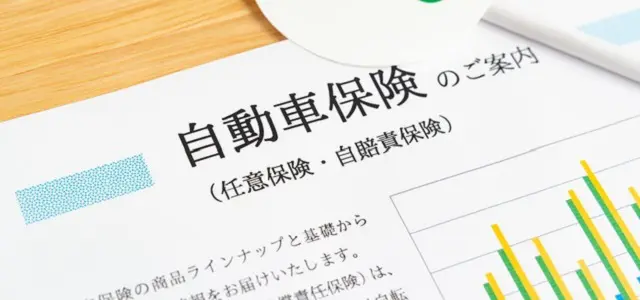 自動車保険 のご案内
（任意保険・自賠責保険）
保険の商品ラインナップと基礎から
をお届けいたします。
責任保険）は、